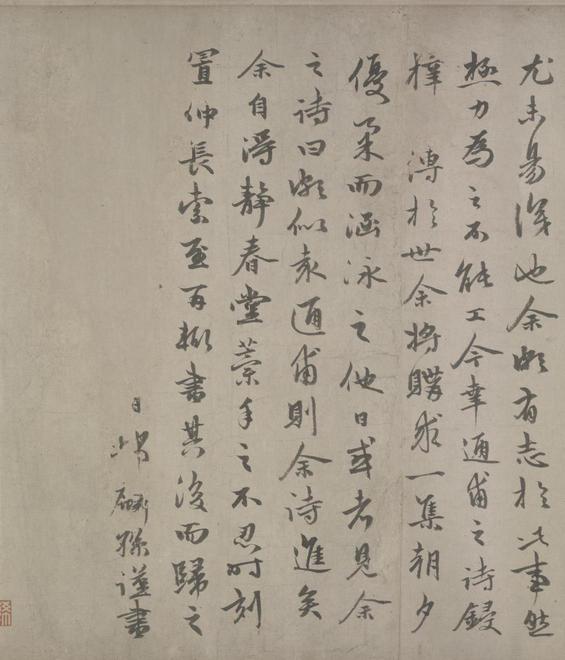 尤未易深也余頗有志於此事然
極力為之不能工今幸通甫之詩鋟
梓 溥於世余將購求一集朝夕
優柔而涵泳之他日或者見余
之詩曰頗似袁通甫則余詩進矣
余自得靜春堂藁手之不忍時刻
置仲長索至再輒書其後而歸之
日 麟孫謹書